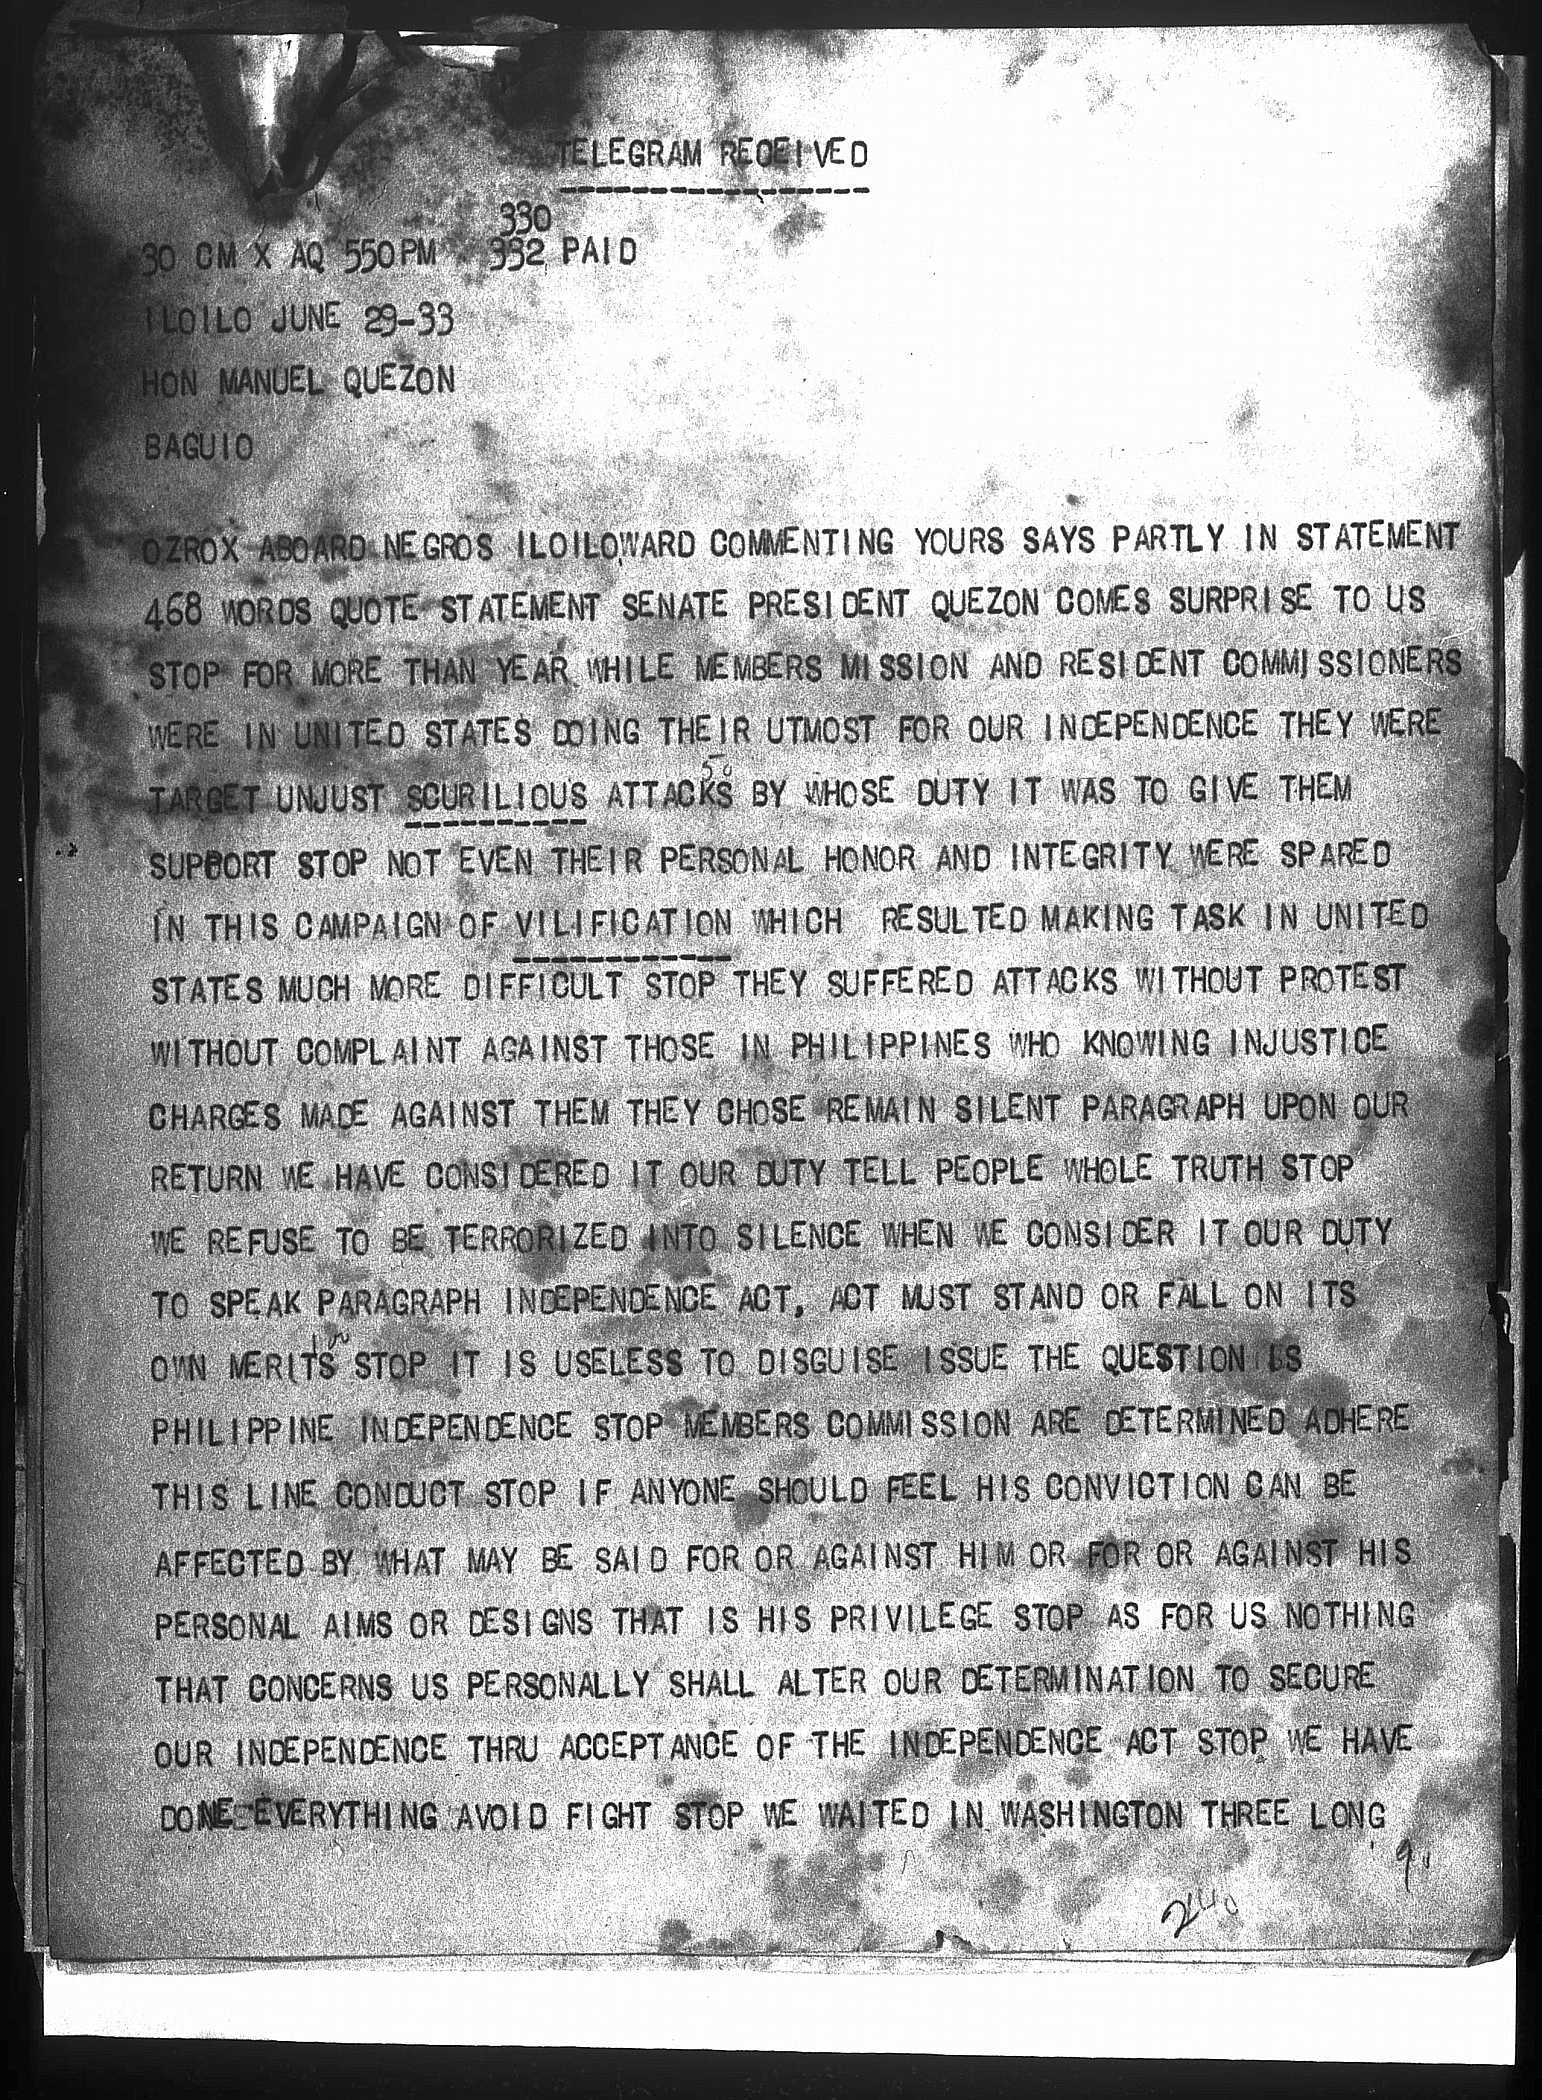 TELEGRAM RECEIVED
330
30 CM X AQ 550PM 332 PAID
ILOILO JUNE 29-33
HON MANUEL QUEZON
BAGUIO
OZROX ABOARD NEGROS ILOILOWARD COMMENTING YOURS SAYS PARTLY IN STATEMENT
468 WORDS QUOTE STATEMENT SENATE PRESIDENT QUEZON COMES SURPRISE TO US
STOP FOR MORE THAN YEAR WHILE MEMBERS MISSION AND RESIDENT COMMISSIONERS
WERE IN UNITED STATES DOING THEIR UTMOST FOR OUR INDEPENDENCE THEY WERE
50
TARGET UNJUST SCURILIOUS ATTACKS BY WHOSE DUTY IT WAS TO GIVE THEM
SUPPORT STOP NOT EVEN THEIR PERSONAL HONOR AND INTEGRITY WERE SPARED
IN THIS CAMPAIGN OF VILIFICATION WHICH RESULTED MAKING TASK IN UNITED
STATES MUCH MORE DIFFICULT STOP THEY SUFFERED ATTACKS WITHOUT PROTEST
WITHOUT COMPLAINT AGAINST THOSE IN PHILIPPINES WHO KNOWING INJUSTICE
CHARGES MADE AGAINST THEM THEY CHOSE REMAIN SILENT PARAGRAPH UPON OUR
RETURN WE HAVE CONSIDERED IT OUR DUTY TELL PEOPLE WHOLE TRUTH STOP
WE REFUSE TO BE TERRORIZED INTO SILENCE WHEN WE CONSIDER IT OUR DUTY
TO SPEAK PARAGRAPH INDEPENDENCE ACT, ACT MUST STAND OR FALL ON ITS
OWN MERITS STOP IT IS USELESS TO DISGUISE ISSUE THE QUESTION IS
PHILIPPINE INDEPENDENCE STOP MEMBERS COMMISSION ARE DETERMINED ADHERE
THIS LINE CONDUCT STOP IF ANYONE SHOULD FEEL HIS CONVICTION CAN BE
AFFECTED BY WHAT MAY BE SAID FOR OR AGAINST HIM OR FOR OR AGAINST HIS
PERSONAL AIMS OR DESIGNS THAT IS HIS PRIVILEGE STOP AS FOR US NOTHING
THAT CONCERNS US PERSONALLY SHALL ALTER OUR DETERMINATION TO SECURE
OUR INDEPENDENCE THRU ACCEPTANCE OF THE INDEPENDENCE ACT STOP WE HAVE
DONE EVERYTHING AVOID FIGHT STOP WE WAITED IN WASHINGTON THREE LONG